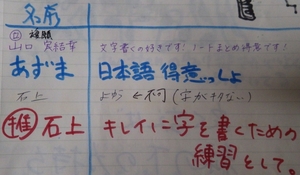 名前
山口 実結菜 文字書くの好きです！ノートまとめ得意です！
あずま 日本語 得意っしょ
石上 よゆう ←不可 (字がキタない)
推 石上 キレイに字を書くための
練習として。